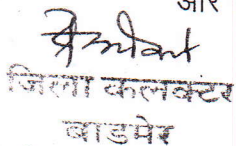 और
जिला कलक्टर
बाडमेर